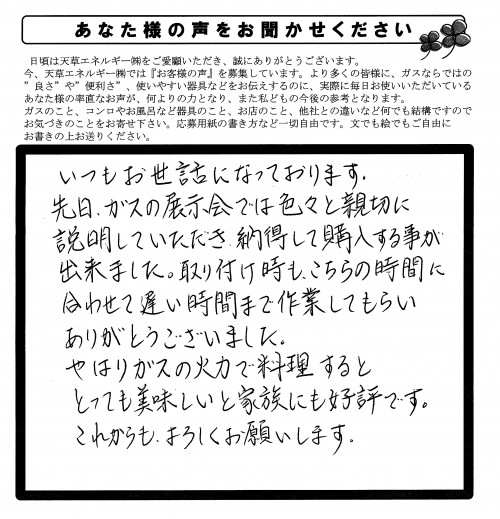 あなた様の声をお聞かせください
日頃は天草エネルギー㈱をご愛顧いただき、誠にありがとうございます。
今、天草エネルギー㈱では『お客様の声』を募集しています。より多くの皆様に、ガスならではの
”良さ”や”便利さ”、使いやすい器具などをお伝えするのに、実際に毎日お使いいただいている
あなた様の率直なお声が、何よりの力となり、また私どもの今後の参考となります。
ガスのこと、コンロやお風呂など器具のこと、お店のこと、他社との違いなど何でも結構ですので
お気づきのことをお寄せ下さい。応募用紙の書き方など一切自由です。文でも絵でもご自由に
お書きの上お送りください。
いつもお世話になっております。
先日、ガスの展示会では色々と親切に
説明していただき、納得して購入する事が
出来ました。取り付け時も、こちらの時間に
合わせて遅い時間まで作業してもらい
ありがとうございました。
やはりガスの火力で料理すると
とっても美味しいと家族にも好評です。
これからも、よろしくお願いします。